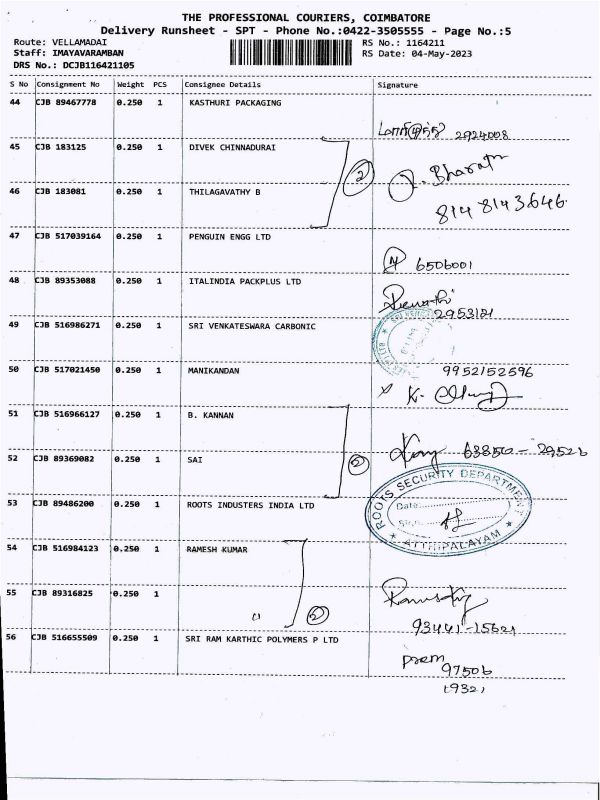 THE PROFESSIONAL COURIERS, COIMBATORE
Delivery Runsheet - SPT - Phone No.:0422-3505555 - Page No.:5
Route: VELLAMADAI RS No.: 1164211
Staff: IMAYAVARAMBAN RS Date: 04-May-2023
DRS No.: DCJB116421105
S No Consignment No Weight PCS Consignee Details Signature
44 CJB 89467778 0.250 1 KASTHURI PACKAGING
2924008
45 CJB 183125 0.250 1 DIVEK CHINNADURAI
2 Bharath
46 CJB 183081 0.250 1 THILAGAVATHY B
814 8143646
47 CJB 517039164 0.250 1 PENGUIN ENGG LTD
6506001
48 CJB 89353088 0.250 1 ITALINDIA PACKPLUS LTD
Revathi
2953121
49 CJB 516986271 0.250 1 SRI VENKATESWARA CARBONIC
50 CJB 517021450 0.250 1 MANIKANDAN 9952152596
51 CJB 516966127 0.250 1 B. KANNAN
52 CJB 89369082 0.250 1 SAI 2 63850-29526
53 CJB 89486200 0.250 1 ROOTS INDUSTERS INDIA LTD
ROOTS SECURITY DEPARTMENT
Date
Sign
ATTHIPALAYAM
54 CJB 516984123 0.250 1 RAMESH KUMAR
55 CJB 89316825 0.250 1
2 93441-15621
56 CJB 516655509 0.250 1 SRI RAM KARTHIC POLYMERS P LTD
prem
97506
19321